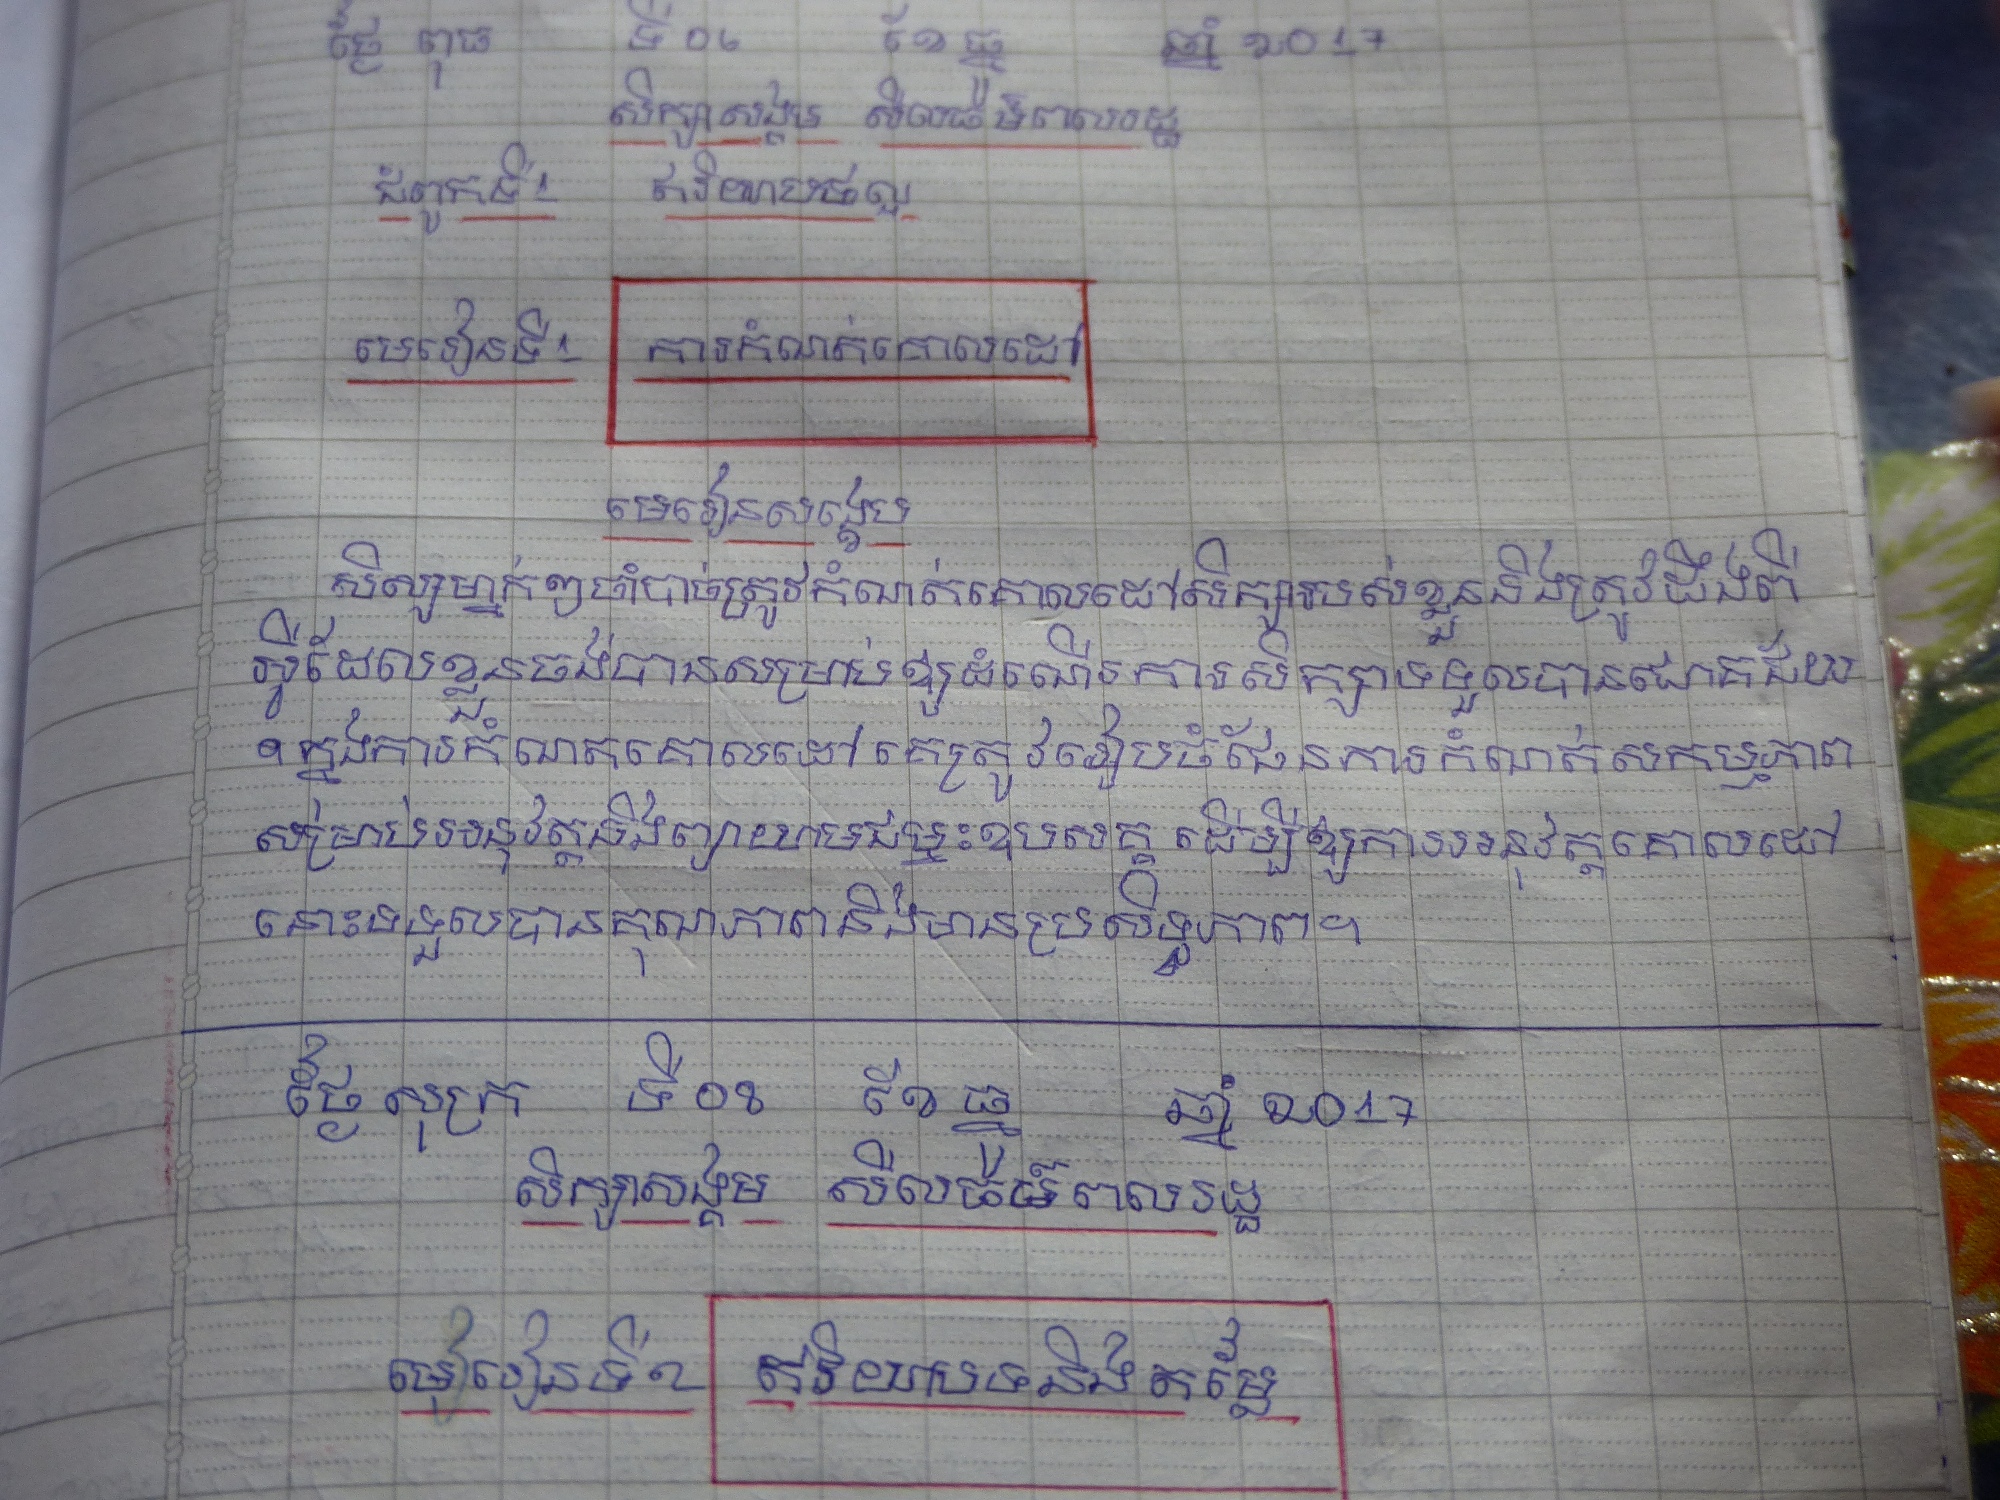 ថ្ងៃ ពុធ ទី 06 ខែ ធ្នូ ឆ្នាំ 2017
សិក្សាសង្គម សីលធម៌ ពលរដ្ឋ
ជំពូកទី១ ឥរិយាបថល្អ
មេរៀនទី១ ការកំណត់គោលដៅ
មេរៀនសង្ខេប
សិស្សម្នាក់ៗចាំបាច់ត្រូវកំណត់គោលដៅសិក្សារបស់ខ្លួននិងត្រូវដឹងពី
អ្វីដែលខ្លួនចង់បានសម្រាប់ឱ្យដំណើរការសិក្សាទទួលបានជោគជ័យ
។ក្នុងការកំណត់គោលដៅ គេត្រូវរៀបចំផែនការកំណត់សកម្មភាព
សម្រាប់អនុវត្តនិងព្យាយាមជម្នះឧបសគ្គ ដើម្បីឱ្យការអនុវត្តគោលដៅ
នោះទទួលបានគុណភាពនិងមានប្រសិទ្ធភាព។
ថ្ងៃ សុក្រ ទី 08 ខែ ធ្នូ ឆ្នាំ 2017
សិក្សាសង្គម សីលធម៌ ពលរដ្ឋ
មេរៀនទី២ ឥរិយាបទនិងតម្លៃ